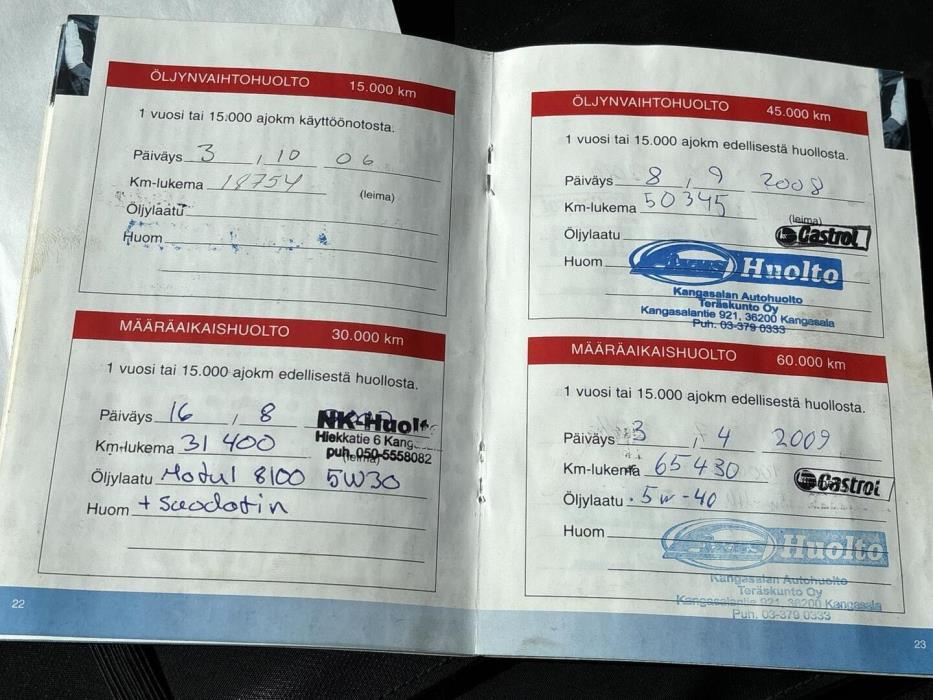 ÖLJYNVAIHTOHUOLTO 15.000 km
1 vuosi tai 15.000 ajokm käyttöönotosta.
Päiväys 3 , 10 06
Km-lukema 18754
(leima)
Öljylaatu
Huom
MÄÄRÄAIKAISHUOLTO 30.000 km
1 vuosi tai 15.000 ajokm edellisestä huollosta.
Päiväys 16 , 8
NK-Huolto
Km-lukema 31 400
Hiekkatie 6 Kang.
puh. 050-5558082
(leima)
Öljylaatu Motul 8100 5W30
Huom + suodatin
22
ÖLJYNVAIHTOHUOLTO 45.000 km
1 vuosi tai 15.000 ajokm edellisestä huollosta.
Päiväys 8 , 9 2008
Km-lukema 50345
(leima)
Öljylaatu
Castrol
Huom
Huolto
Kangasalan Autohuolto
Teräskunto Oy
Kangasalantie 921, 36200 Kangasala
Puh. 03-379 0333
MÄÄRÄAIKAISHUOLTO 60.000 km
1 vuosi tai 15.000 ajokm edellisestä huollosta.
Päiväys 3 , 4 2009
Km-lukema 65430
Castrol
Öljylaatu 5w-40
Huom
Huolto
Kangasalan Autohuolto
Teräskunto Oy
Kangasalantie 921, 36200 Kangasala
Puh. 03-379 0333
23